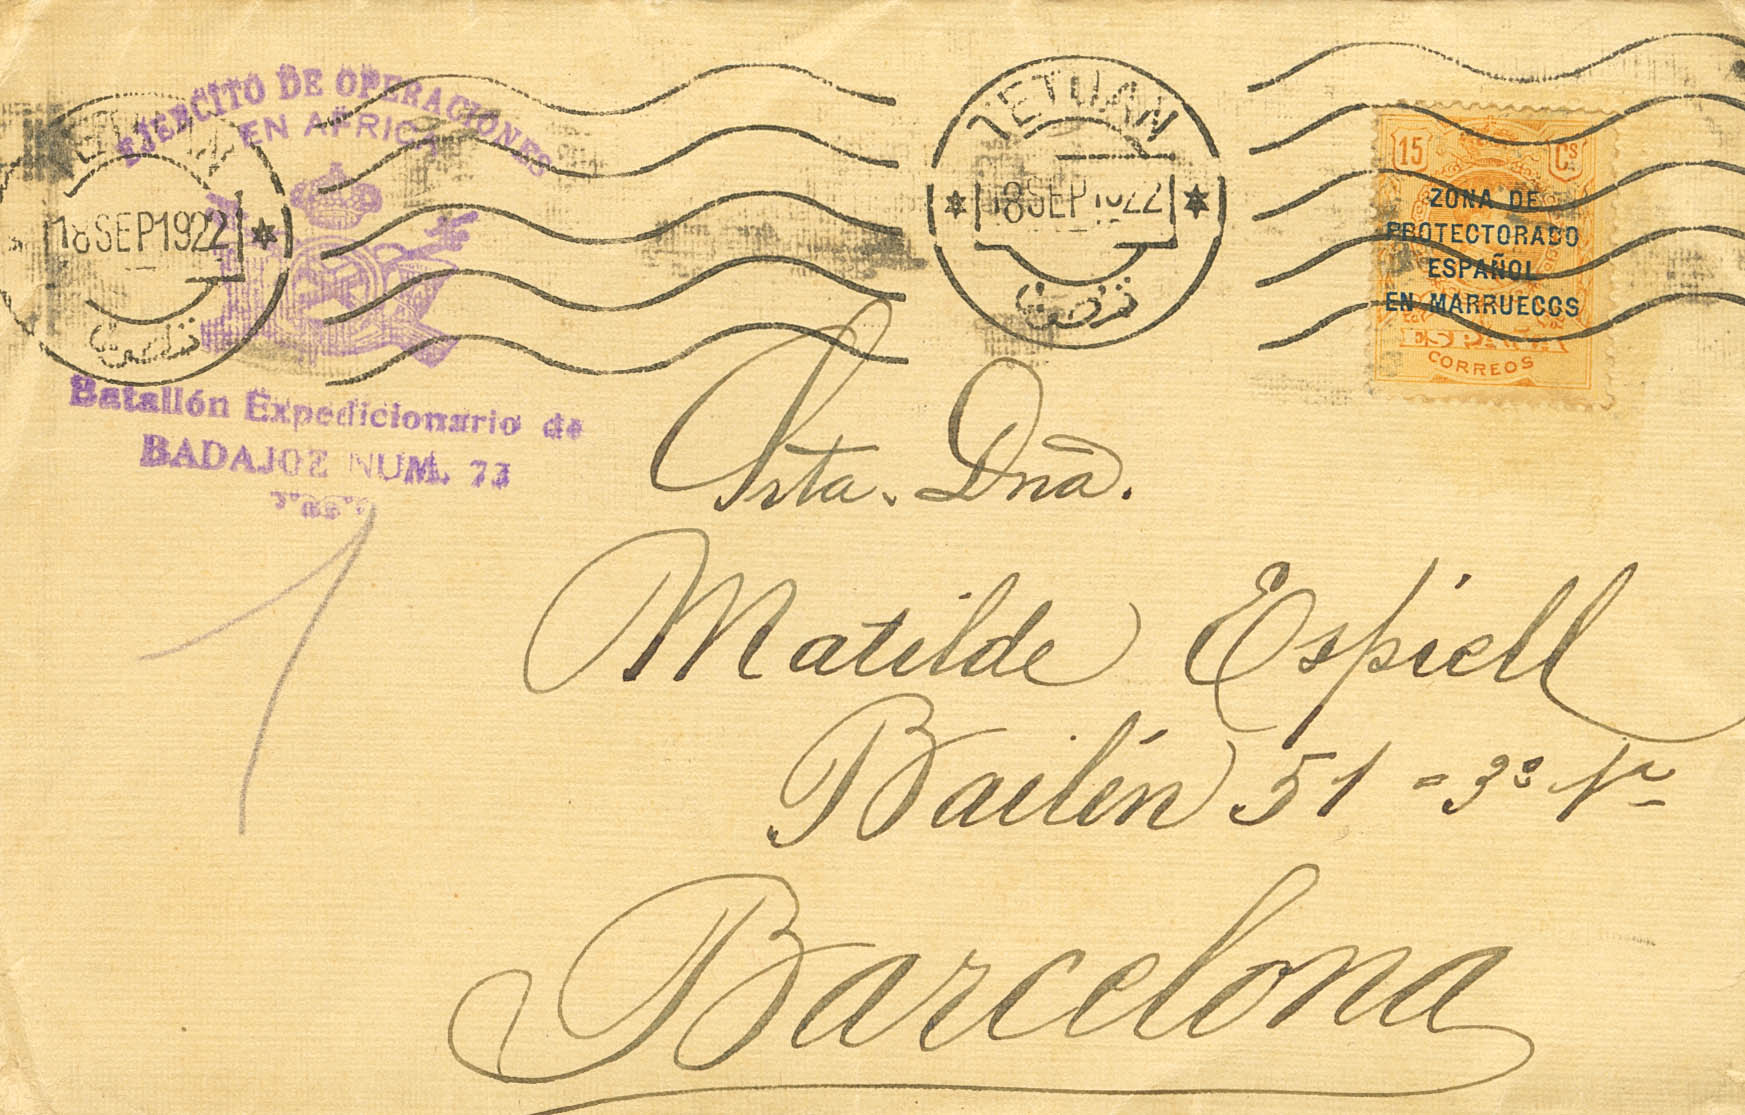 TETUAN
18 SEP 1922
EJERCITO DE OPERACIONES
EN AFRICA
Batallón Expedicionario de
BADAJOZ NUM. 73
TETUAN
18 SEP 1922
15 Cs
ZONA DE
PROTECTORADO
ESPAÑOL
EN MARRUECOS
ESPAÑA
CORREOS
Srta. Dña.
Matilde Espiell
Bailén 51 = 3º 1ª
Barcelona